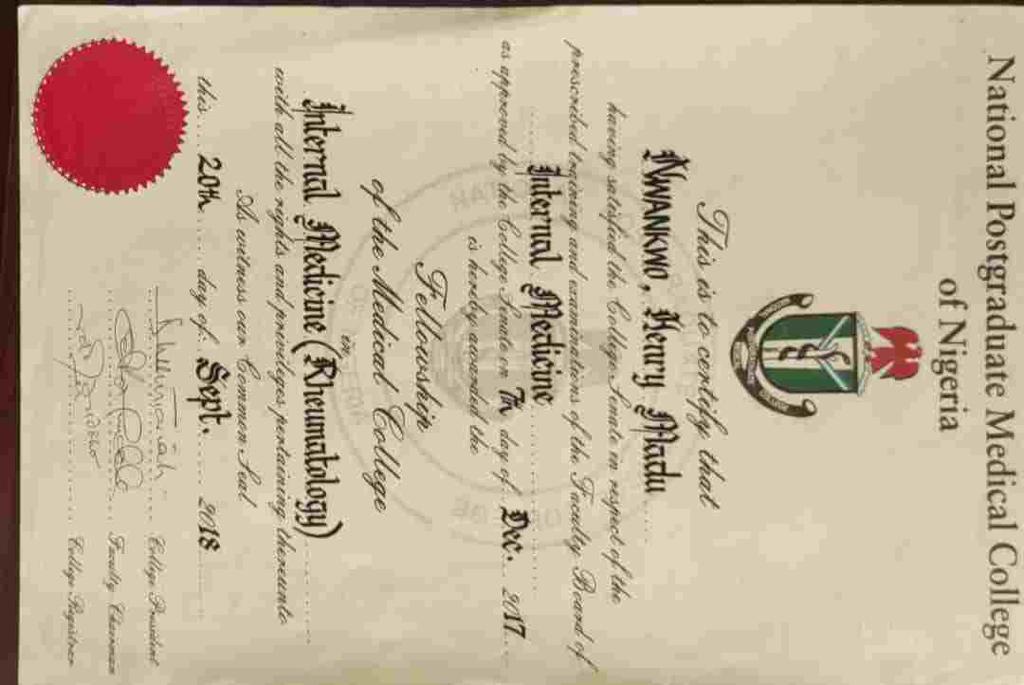 National Postgraduate Medical College
of Nigeria
This is to certify that
NWANKWO, Henry Madu
having satisfied the College Senate in respect of the
prescribed training and examinations of the Faculty Board of
Internal Medicine
as approved by the College Senate on 7th day of Dec. 2017
is hereby awarded the
Fellowship
of the Medical College
in
Internal Medicine (Rheumatology)
with all the rights and privileges pertaining thereunto
As witness our Common Seal
this 20th day of Sept. 2018
College President
Faculty Chairman
College Registrar